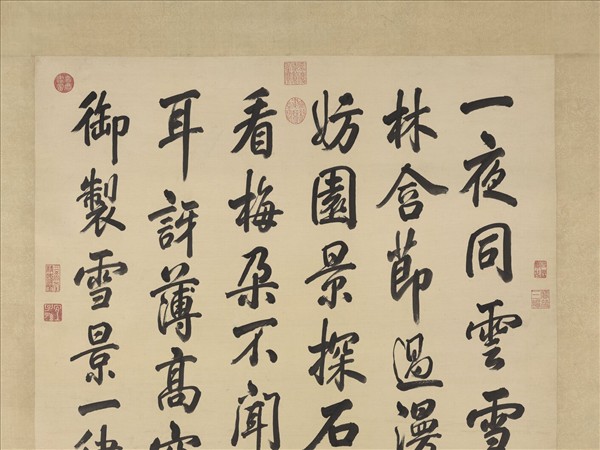 一夜同雲雪
林含節過漫
妨園景探石
看梅朵不聞
耳訝薄高
御製雪景一律